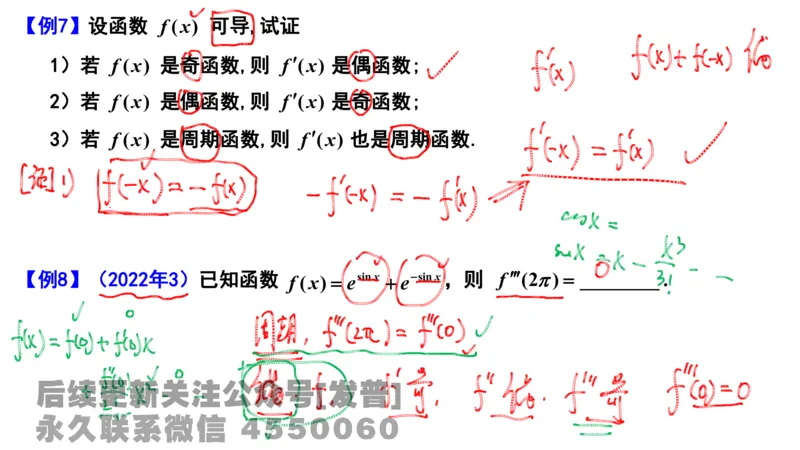 【例7】设函数 f(x) 可导, 试证
1）若 f(x) 是奇函数, 则 f′(x) 是偶函数;
2）若 f(x) 是偶函数, 则 f′(x) 是奇函数;
3）若 f(x) 是周期函数, 则 f′(x) 也是周期函数.
f′(x)
f(x)+f(-x) 偶
f′(-x) = f′(x)
[证] 1) f(-x) = -f(x)
-f′(-x) = -f′(x)
cos x =
sin x = x - x³/3! - —
0
【例8】（2022年3）已知函数 f(x) = e^{sin x} + e^{-sin x}, 则 f‴(2π) = ________.
f(x) = f(0) + f′(0)x
0
周期, f‴(2π) = f‴(0)
偶 f, f′ 奇, f″ 偶. f‴ 奇 f‴(0) = 0
后续更新关注公众号[发普]
永久联系微信 4550060